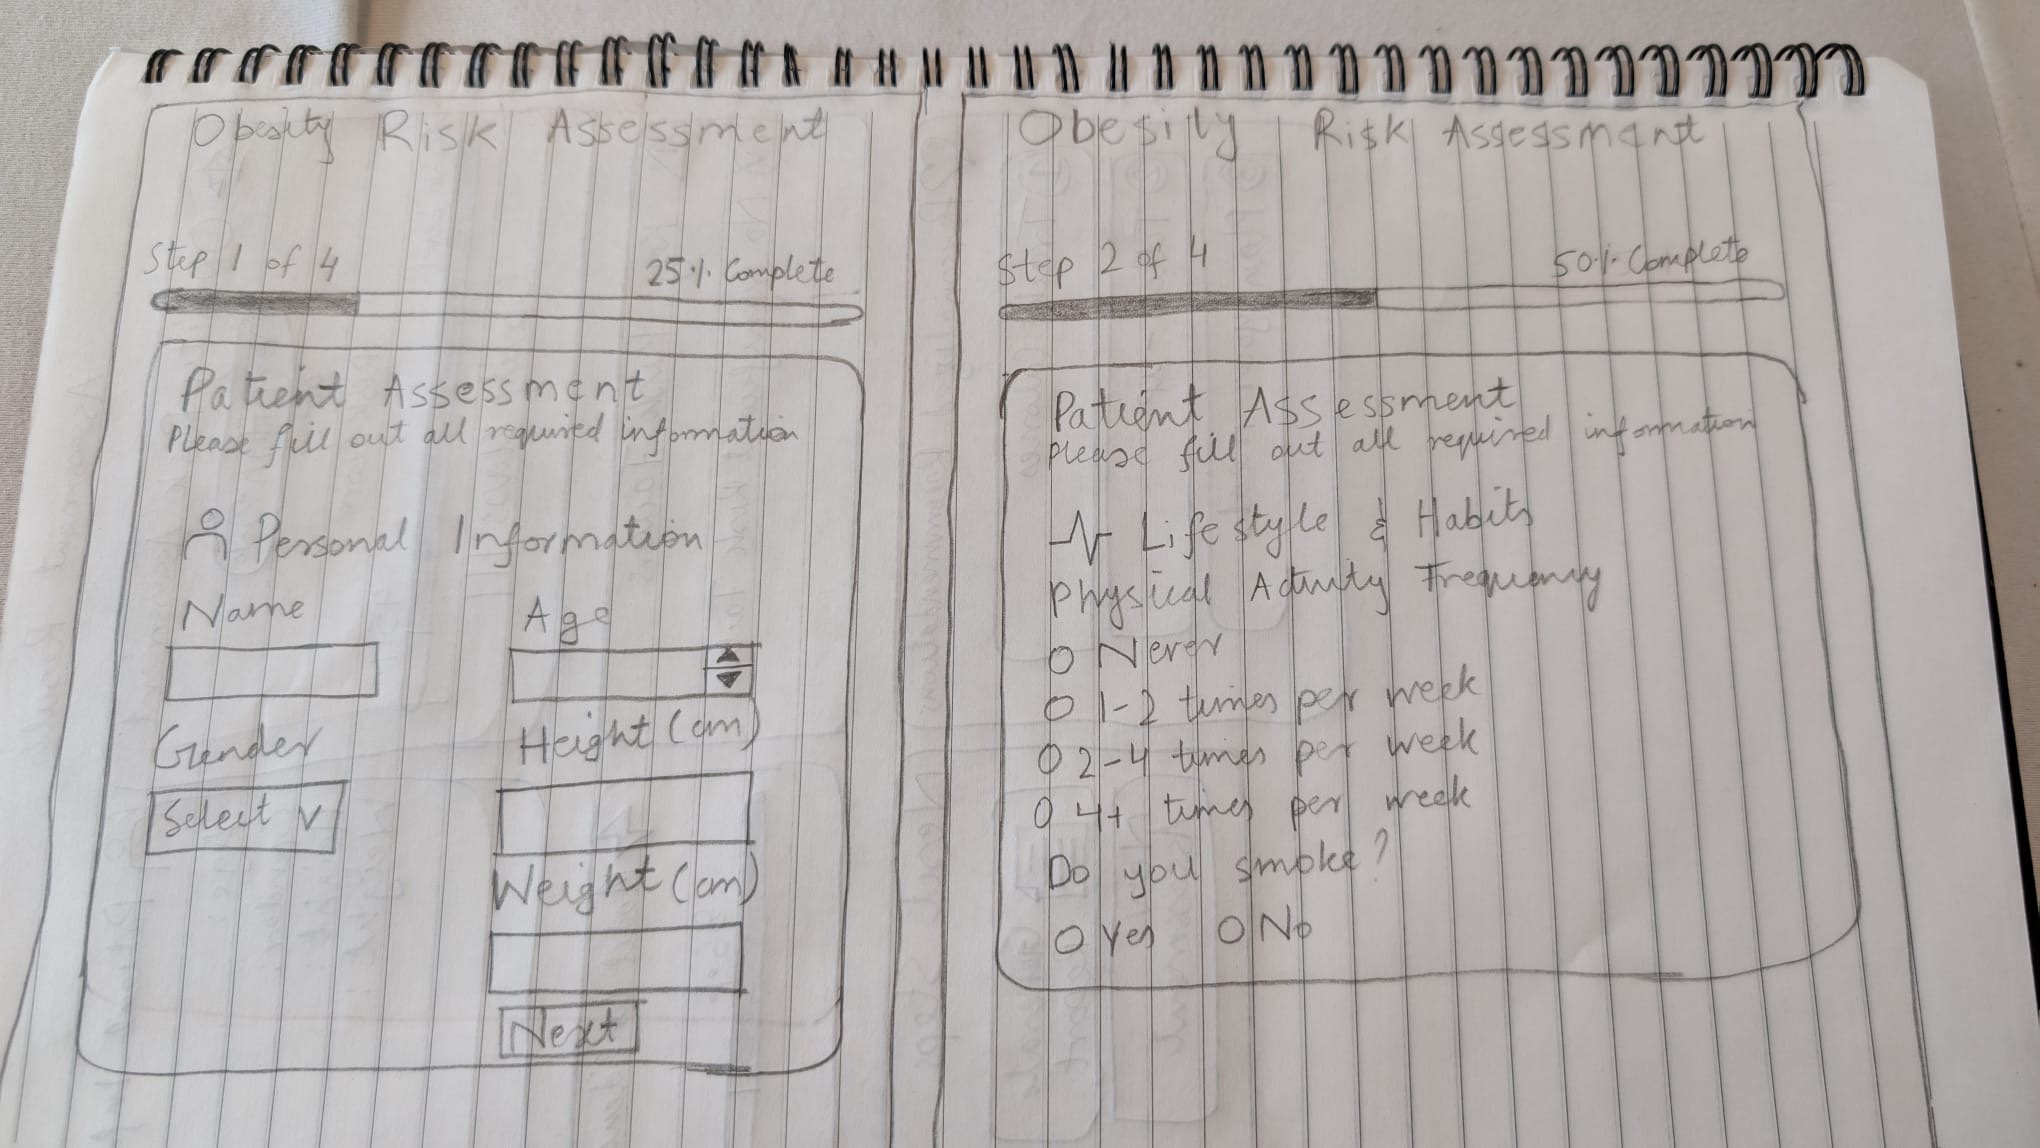 Obesity Risk Assessment
Step 1 of 4
25% Complete
Patient Assessment
Please fill out all required information
Personal Information
Name
Age
Gender
Height (cm)
Select v
Weight (cm)
Next
Obesity Risk Assessment
Step 2 of 4
50% Complete
Patient Assessment
Please fill out all required information
Lifestyle & Habits
Physical Activity Frequency
Never
1-2 times per week
2-4 times per week
4+ times per week
Do you smoke?
Yes No